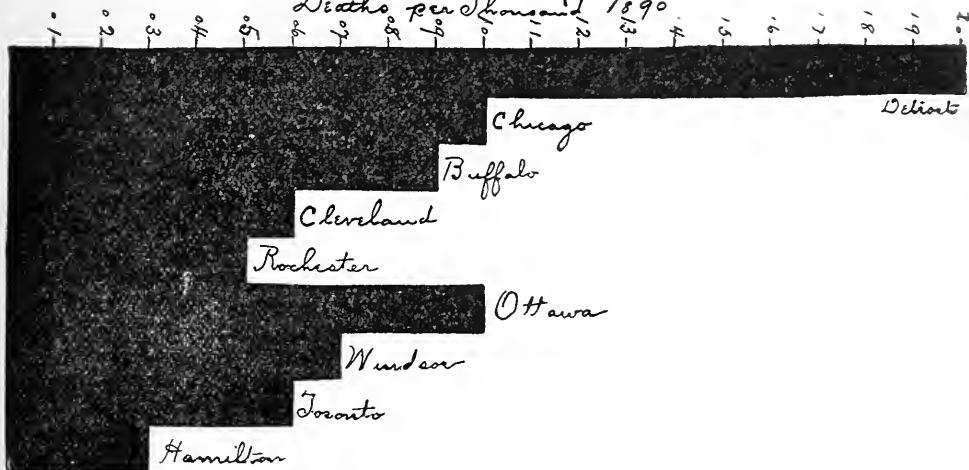 Deaths per Thousand 1890
0.1 0.2 0.3 0.4 0.5 0.6 0.7 0.8 0.9 1.0 1.1 1.2 1.3 1.4 1.5 1.6 1.7 1.8 1.9 2.0
Detroit
Chicago
Buffalo
Cleveland
Rochester
Ottawa
Windsor
Toronto
Hamilton